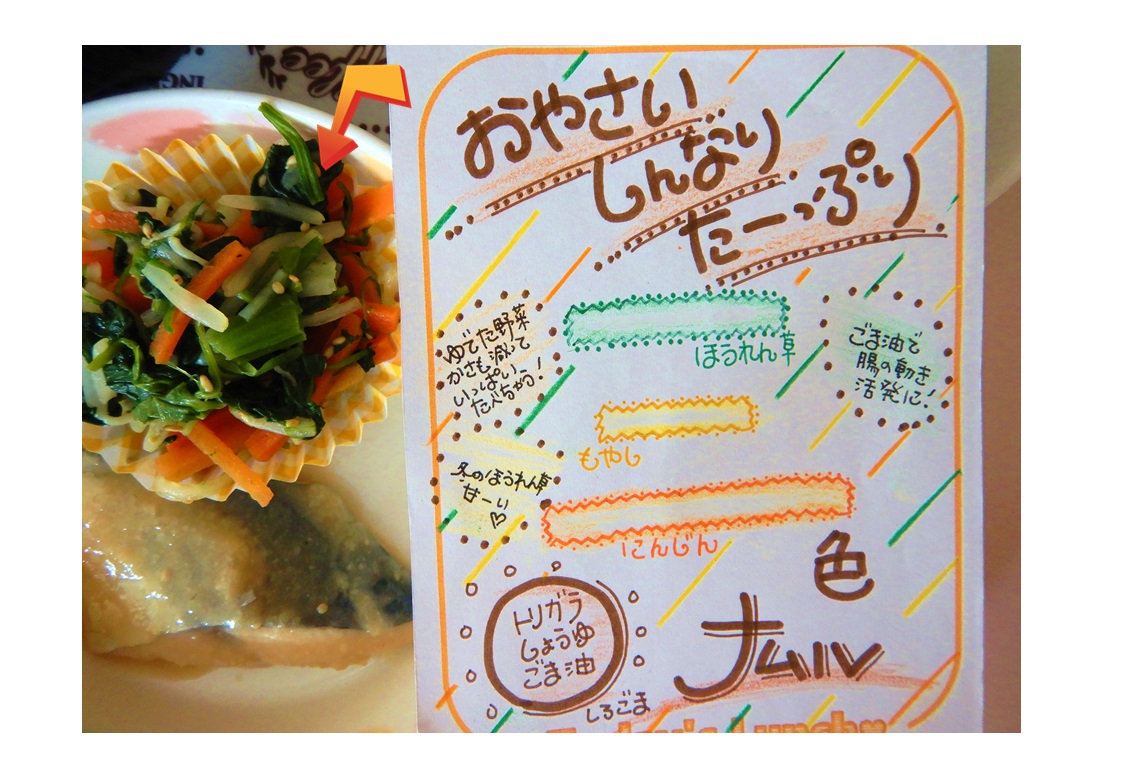 おやさい
しんなり
たーっぷり
ほうれん草
ゆでた野菜
かさも減って
いっぱい
たべちゃう!
ごま油で
腸の動き
活発に!
もやし
冬のほうれん草
甘ーい♡
にんじん
色
ナムル
トリガラ
しょうゆ
ごま油
しろごま
Today's Lunch